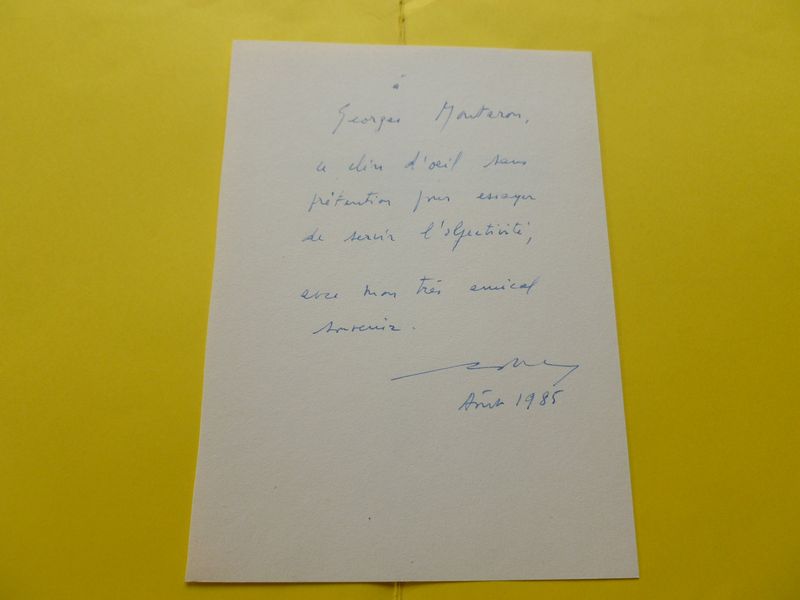 à
Georges Montaron,
ce clin d'oeil sans
prétention pour essayer
de servir l'objectivité,
avec mon très amical
souvenir.
Août 1985